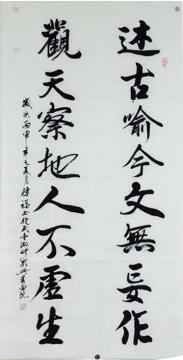 述古喻今文無妄作
觀天察地人不虛生
歲次丙申年夏月